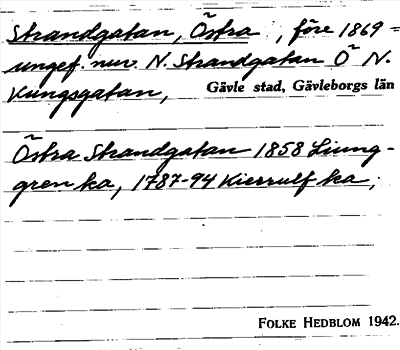 Strandgatan, Östra, före 1869 =
ungef. nuv. N. Strandgatan O N.
Kungsgatan,
Gävle stad, Gävleborgs län
Östra Strandgatan 1858 Ljung-
gren ka, 1787-94 Kierrulf ka;
FOLKE HEDBLOM 1942.